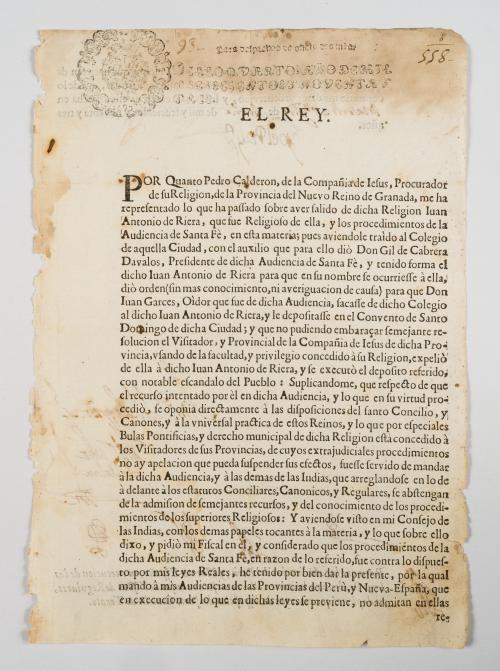 93
8
558
Para despachos de oficio dos mrs.
SELLO QVARTO, AÑO DE MIL
SEISCIENTOS Y NOVENTA Y
TRES.
EL REY.
POR Quanto Pedro Calderon, de la Compañia de Iesus, Procurador
de su Religion, de la Provincia del Nuevo Reino de Granada, me ha
representado lo que ha passado sobre aver salido de dicha Religion Iuan
Antonio de Riera, que fue Religioso de ella, y los procedimientos de la
Audiencia de Santa Fè, en esta materia; pues aviendole traìdo al Colegio
de aquella Ciudad, con el auxilio que para ello diò Don Gil de Cabrera
Davalos, Presidente de dicha Audiencia de Santa Fè, y tenido forma el
dicho Iuan Antonio de Riera para que en su nombre se ocurriesse à ella,
diò orden (sin mas conocimiento, ni averiguacion de causa) para que Don
Iuan Garces, Oìdor que fue de dicha Audiencia, sacasse de dicho Colegio
al dicho Iuan Antonio de Riera, y le depositasse en el Convento de Santo
Domingo de dicha Ciudad; y que no pudiendo embaraçar semejante re-
solucion el Visitador, y Provincial de la Compañia de Iesus de dicha Pro-
vincia, vsando de la facultad, y privilegio concedido à su Religion, expeliò
de ella à dicho Iuan Antonio de Riera, y se executò el deposito referido,
con notable escandalo del Pueblo: Suplicandome, que respecto de que
el recurso intentado por èl en dicha Audiencia, y lo que en su virtud pro-
cediò, se oponia directamente à las disposiciones del santo Concilio, y
Canones, y à la vniversal practica de estos Reinos, y lo que por especiales
Bulas Pontificias, y derecho municipal de dicha Religion està concedido à
los Visitadores de sus Provincias, de cuyos extrajudiciales procedimientos
no ay apelacion que pueda suspender sus efectos, fuesse servido de mandar
à la dicha Audiencia, y à las demas de las Indias, que arreglandose en lo de
à delante à los estatutos Conciliares, Canonicos, y Regulares, se abstengan
de la admision de semejantes recursos, y del conocimiento de los procedi-
mientos de los superiores Religiosos: Y aviendose visto en mi Consejo de
las Indias, con los demas papeles tocantes à la materia, y lo que sobre ello
dixo, y pidiò mi Fiscal en èl, y considerado que los procedimientos de la
dicha Audiencia de Santa Fè, en razon de lo referido, fue contra lo dispues-
to por mis leyes Reales, he tenido por bien dar la presente, por la qual
mando à mis Audiencias de las Provincias del Perù, y Nueva-España, que
en execucion de lo que en dichas leyes se previene, no admitan en ellas
re-